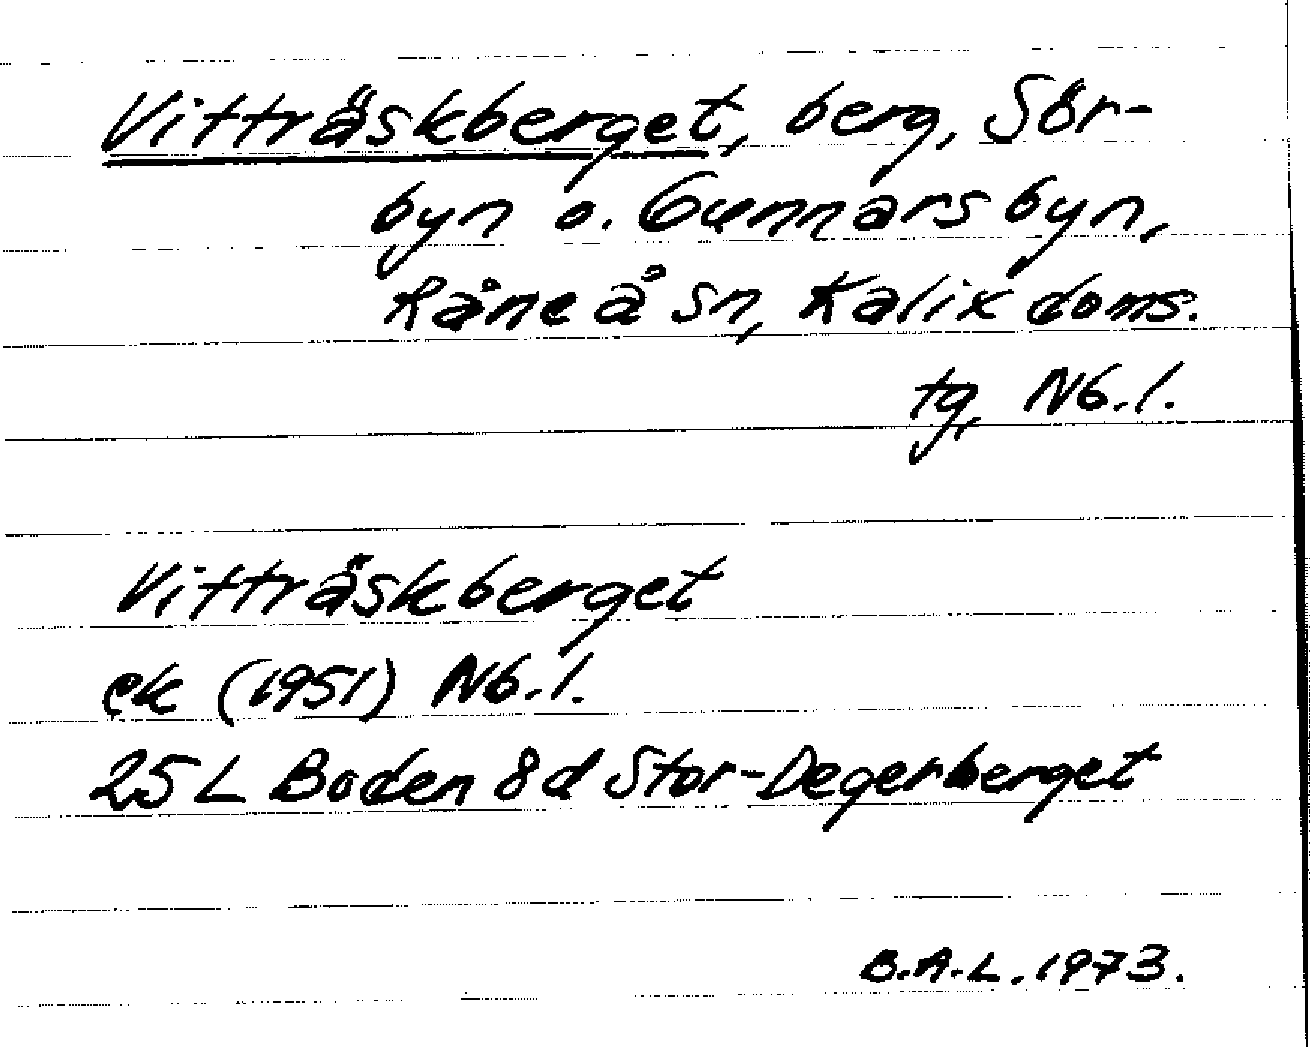 Vitträskberget, berg, Sör-
byn o. Gunnarsbyn,
Råneå sn, Kalix doms.
tg, Nb.l.
Vitträskberget
ek (1951) Nb.l.
25 L Boden 8d Stor-Degerberget
B.A.L. 1973.